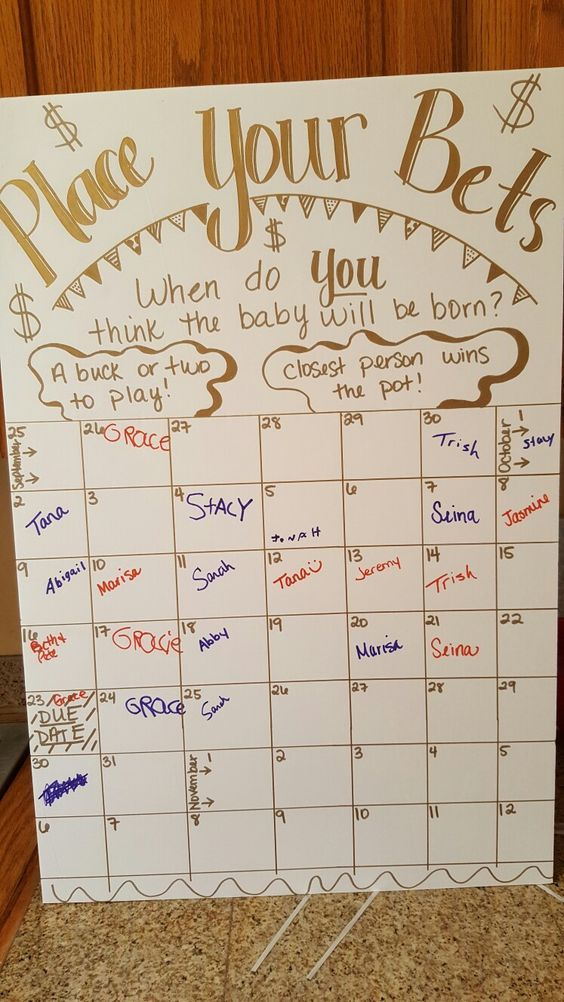 $ $
Place Your Bets
$
When do YOU
$
think the baby will be born?
A buck or two
to play!
Closest person wins
the pot!
25 September → →
26 GRACE
27
28
29
30 Trish
October 1 → → Stacy
2 Tana
3
4 STACY
5
6
7 Seina
8 Jasmine
9 Abigail
10 Marisa
11 Sarah
12 Tana
13 Jeremy
14 Trish
15
16 Beth &
Pete
17 GRACIE
18 Abby
19
20 Marisa
21 Seina
22
23 Grace
DUE
DATE
24 GRACE
25 Sarah
26
27
28
29
30
31
November 1 → →
2
3
4
5
6
7
8
9
10
11
12